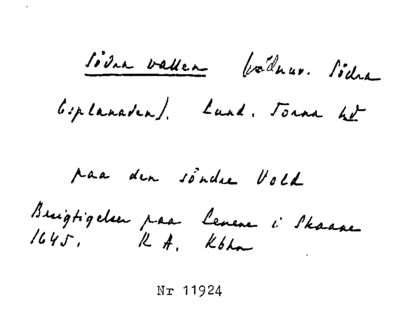 Södra vallen (södnuv. Södra
Esplanaden). Lund. Torna hd
paa den söndre Vold
Besigtigelser paa Lenene i Skaane
1645. R A. Kbhn
Nr 11924